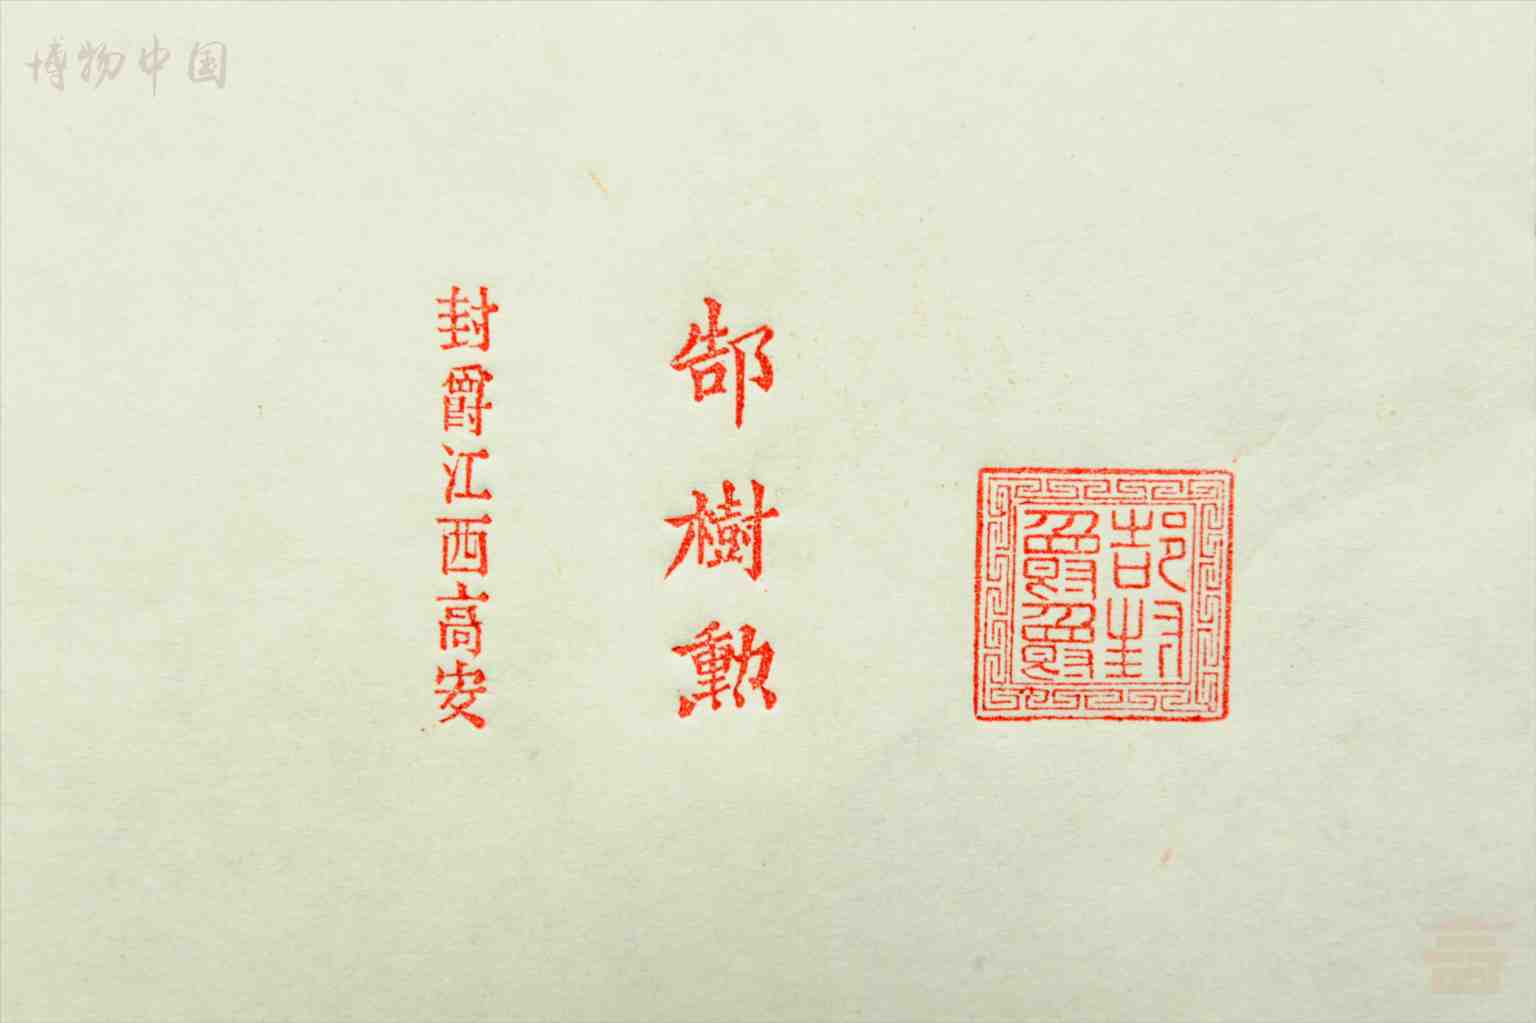 博物中国
郜封
郜樹勲
封爵江西高安